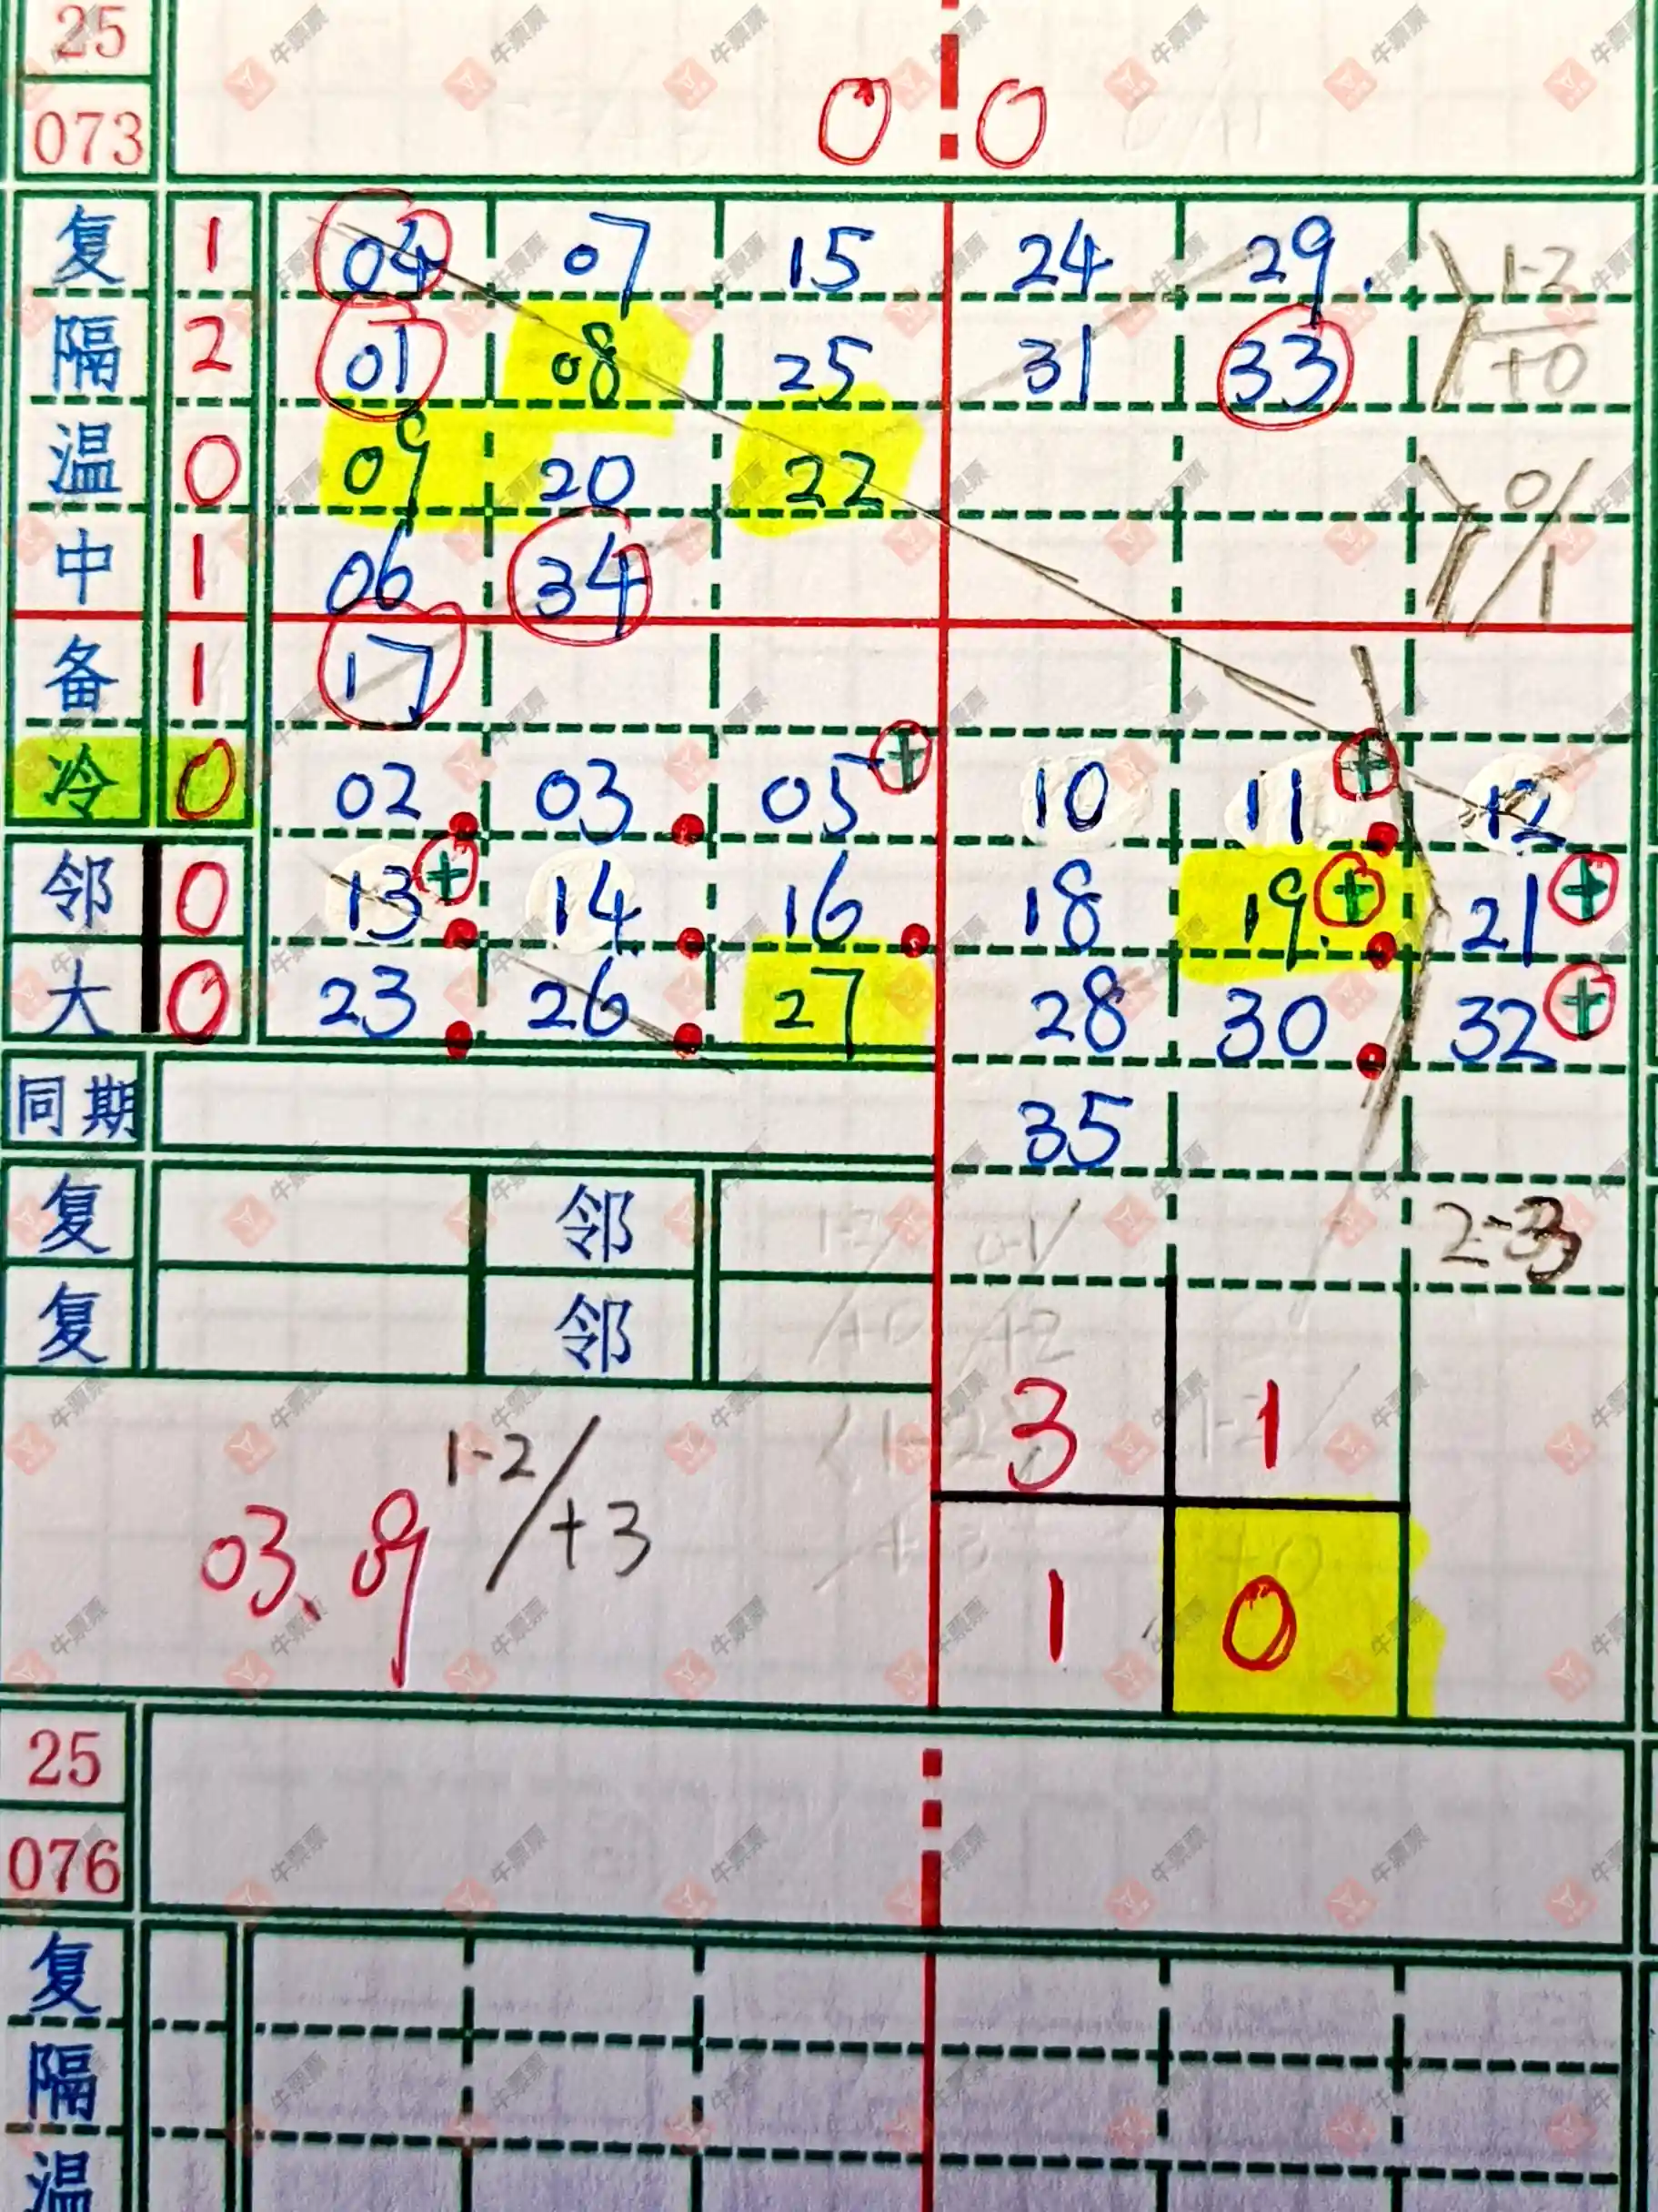 25
073 0 0
复 1 04 07 15 24 29. 1-2
隔 2 01 08 25 31 33 +0
温 0 09 20 22 0/
中 1 06 34 1
备 1 17
冷 0 02 03 05+ 10 11+ 12
邻 0 13+ 14 16 18 19.+ 21+
大 0 23 26 27 28 30 32+
同期 35
复 邻 1-2/ 0-1/ 2-3
复 邻 +0 +2
3 1
03、09 1-2/+3
1 0
25
076
复
隔
温
牛票票